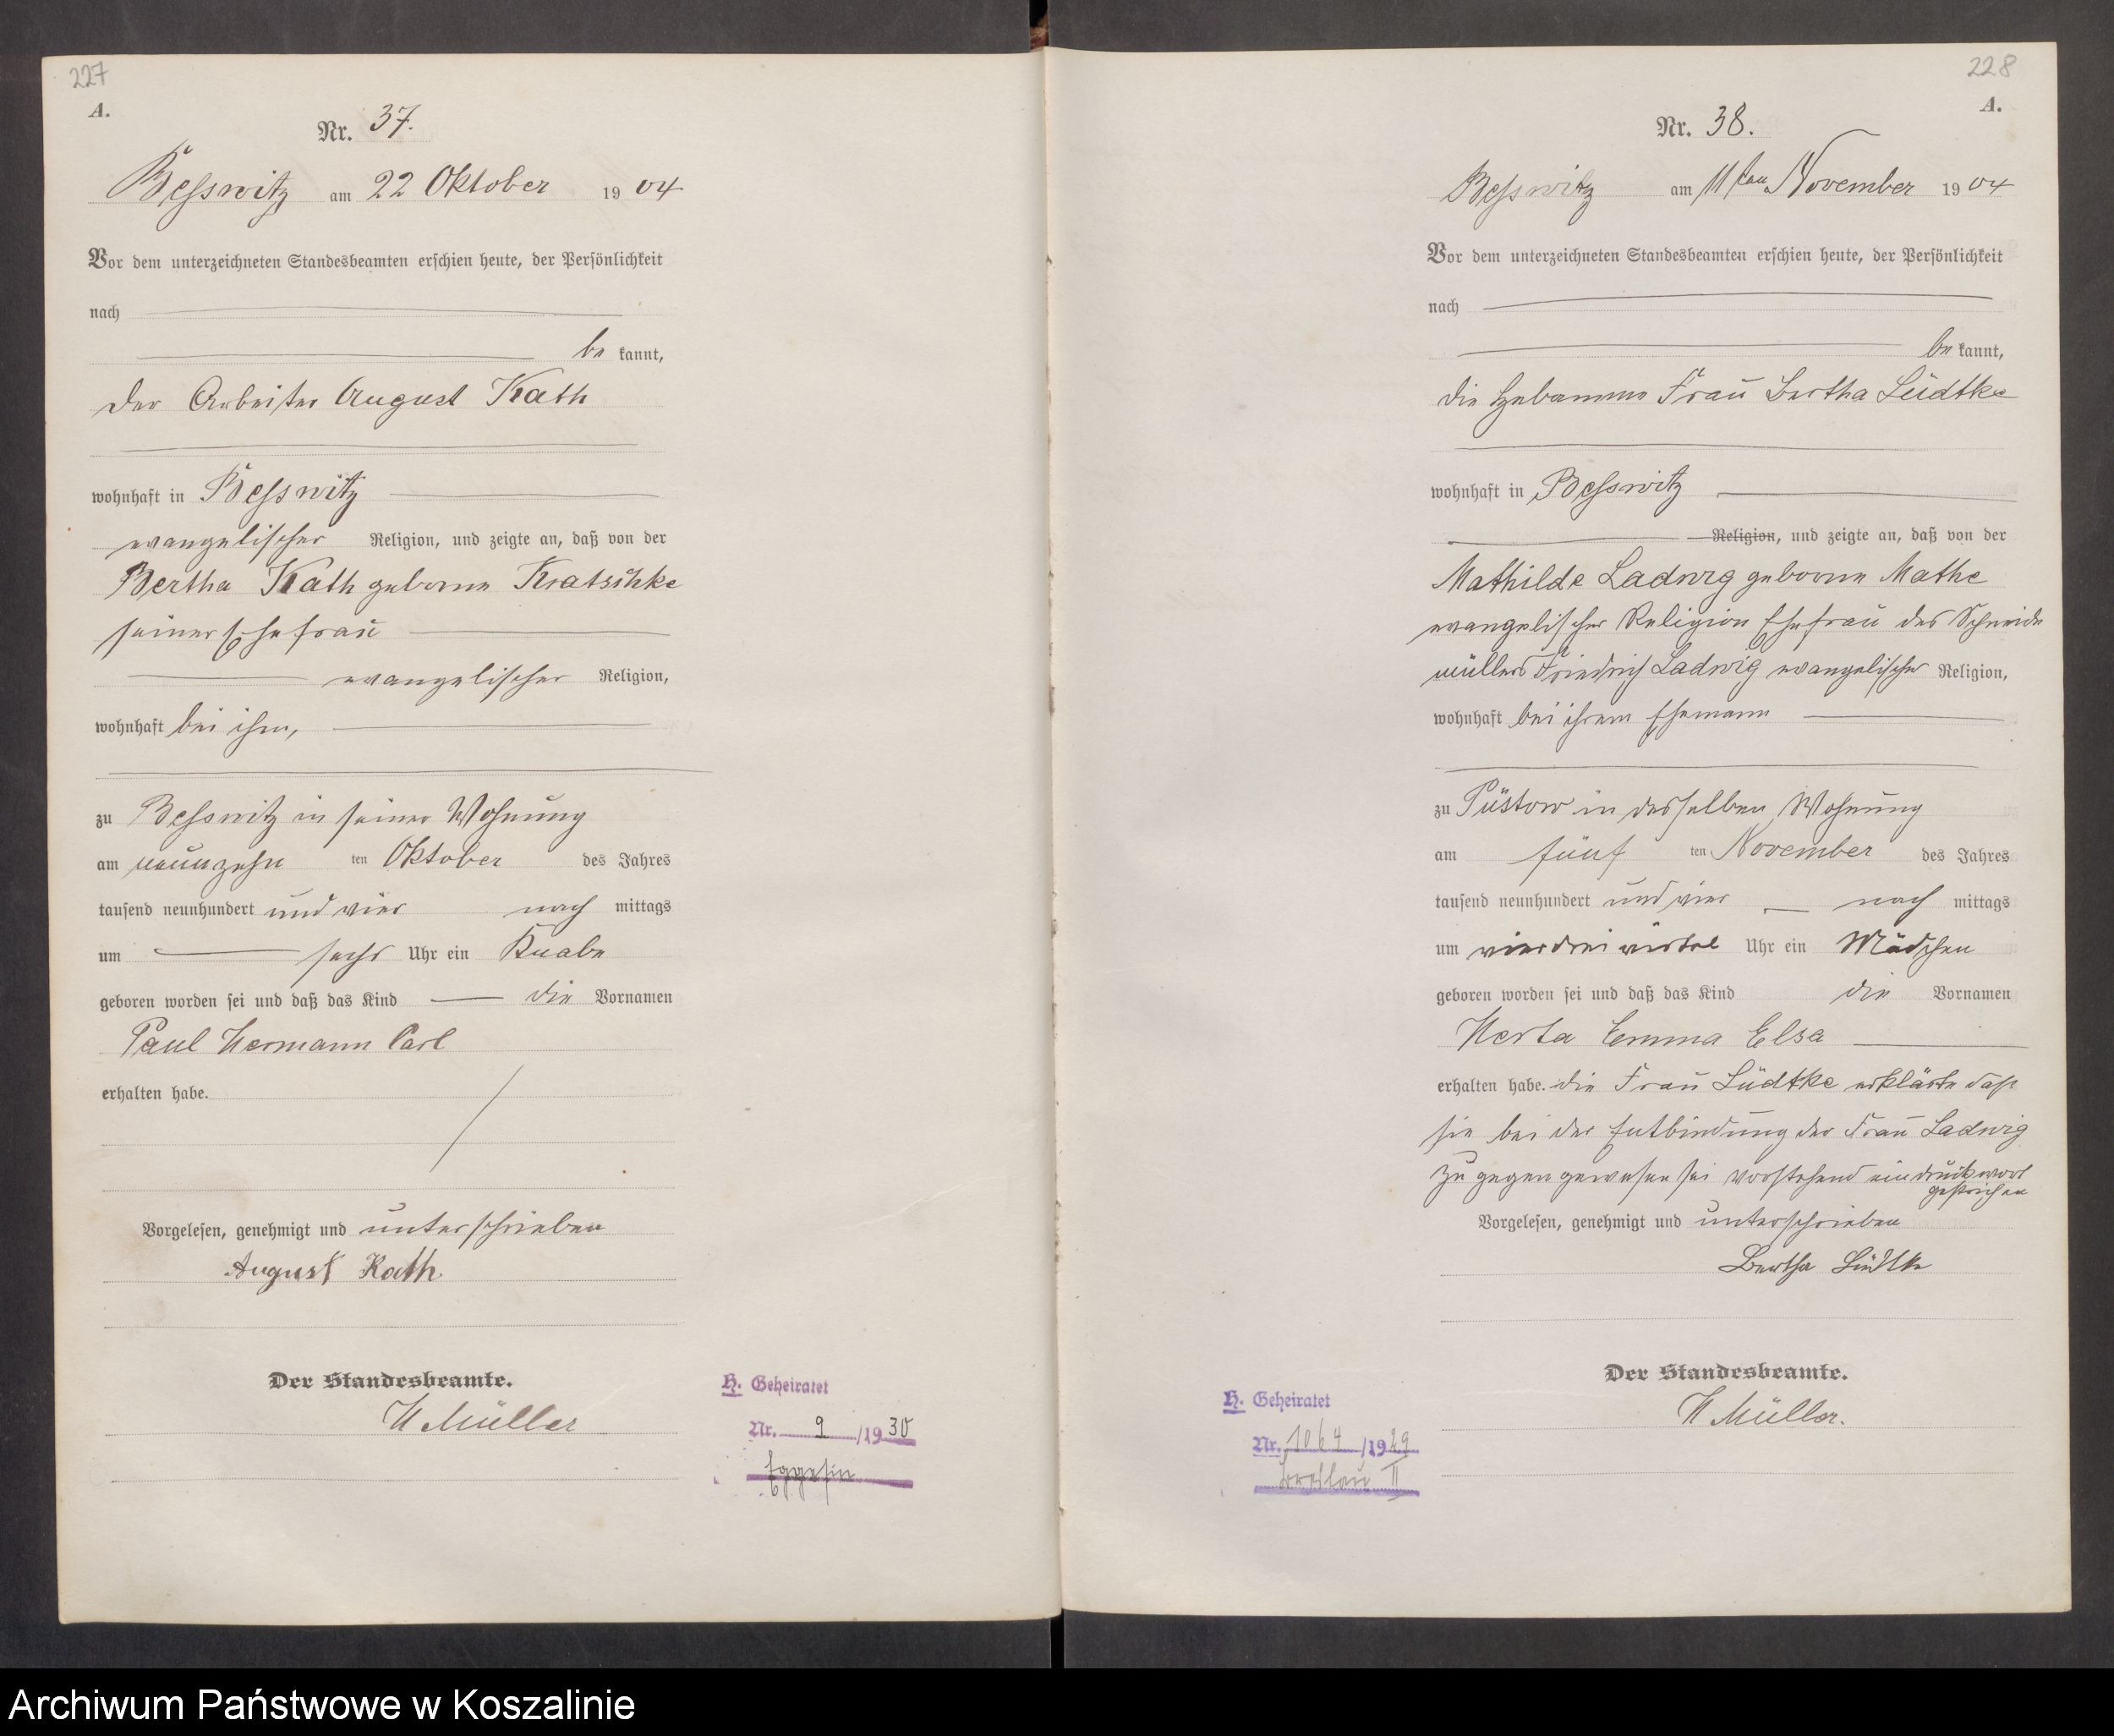 227
A.
Nr. 37.
Besswitz am 22 Oktober 1904
Vor dem unterzeichneten Standesbeamten erschien heute, der Persönlichkeit
nach
be kannt,
der Arbeiter August Kath
wohnhaft in Besswitz
evangelischer Religion, und zeigte an, daß von der
Bertha Kath geborne Kratschke
seiner Ehefrau
evangelischer Religion,
wohnhaft bei ihm,
zu Besswitz in seiner Wohnung
am neunzehn ten Oktober des Jahres
tausend neunhundert und vier nach mittags
um sechs Uhr ein Knabe
geboren worden sei und daß das Kind die Vornamen
Paul Hermann Carl
erhalten habe.
Vorgelesen, genehmigt und unterschrieben
August Kath
Der Standesbeamte.
H Müller
H. Geheiratet
Nr. 9 /1930
Eggesin
228
A.
Nr. 38.
Besswitz am 11ten November 1904
Vor dem unterzeichneten Standesbeamten erschien heute, der Persönlichkeit
nach
be kannt,
die Hebamme Frau Bertha Lüdtke
wohnhaft in Besswitz
Religion, und zeigte an, daß von der
Mathilde Ladwig geborne Mathe
evangelischer Religion Ehefrau des Schneide
müllers Friedrich Ladwig evangelischer Religion,
wohnhaft bei ihrem Ehemann
zu Püstow in desselben Wohnung
am fünf ten November des Jahres
tausend neunhundert und vier nach mittags
um vierdreiviertel Uhr ein Mädchen
geboren worden sei und daß das Kind die Vornamen
Herta Emma Elsa
erhalten habe. die Frau Lüdtke erklärte daß
sie bei der Entbindung der Frau Ladwig
zu gegen gewesen sei vorstehend ein druckwort
gestrichen
Vorgelesen, genehmigt und unterschrieben
Bertha Lüdtke
Der Standesbeamte.
H Müller.
H. Geheiratet
Nr. 1064 /1929
Breslau II
Archiwum Państwowe w Koszalinie